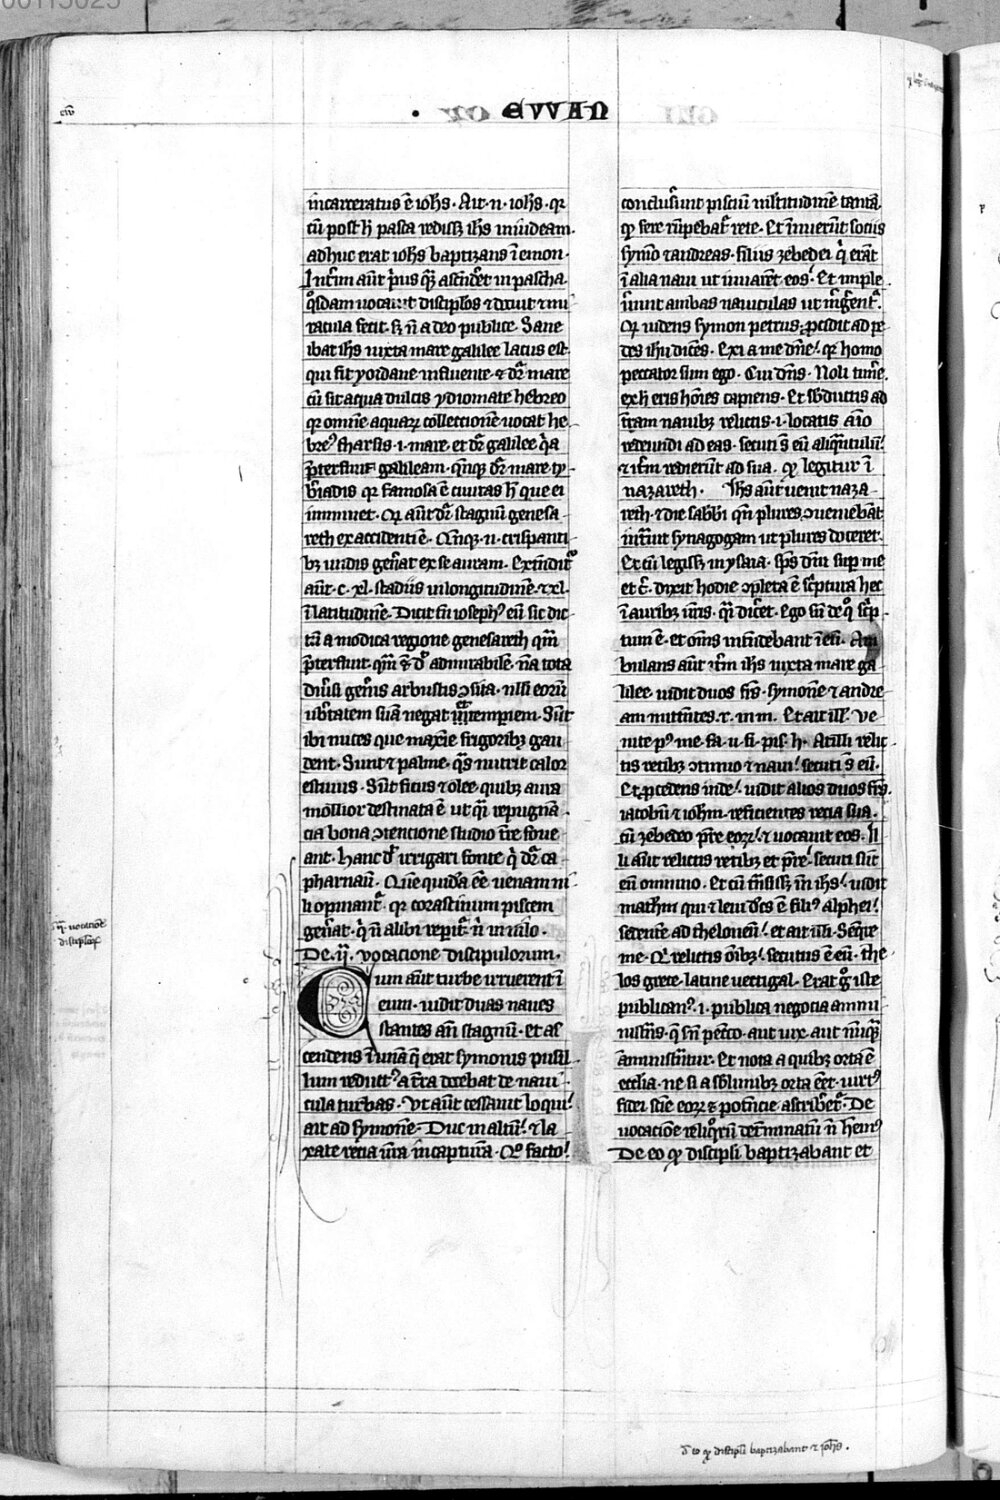 EVVAN
incarceratus ē iohs. Ait. n. iohs. qr
cū post h̄ pasca redisset ihs in iudeam.
adhuc erat iohs baptizans ī emon.
Int̄im aūt pͥus qᷓ ascend̄et in pascha.
qͦsdam vocauit discipľos ⁊ docuit ⁊ mi
racula fecit. sꝫ n̄ adeo publice. Sane
ibat ihs iuxta mare galilee lacus est.
qui fit yordane influente. ⁊ dr̄ mare
cū sit aqua dulcis ydiomate hebreo
qr omnē aquaꝝ collectionē vocat he
breꝰ tharsis .i. mare. et dr̄ galilee qͥa
p̄terfluit galileam. qn̄qꝫ dr̄ mare ty
b̄iadis qr famosa ē ciuitas h̄ que ei
imminet. Qr aūt dr̄ stagnū genesa
reth ex accidenti ē. Qn̄qꝫ .n. crispanti
bꝫ undis gen̄at ex se auram. Extendit͛
aūt .c. xl. stadiis in longitudinē. ⁊ xl.
ī latitudinē. Dicit tn̄ iosephꝰ eū sic dic
tū a modica regione genesareth qm̄
p̄terfluit. qm̄ ⁊ dͬ admirabile. nā tota
diūsi gen̄is arbustis ↄsita. nļļi eorū
vb̄tatem suā negat intemperiem. Sūt
ibi nuces que maxīe frigoribꝫ gau
dent. Sunt ⁊ palme. qͣs nutrit calor
estiuus. Sūt ficus ⁊ olee. quibꝫ aura
mollior destinata ē ut qͣ repugnā
cia bona ↄtencione studio t̄re foue
ant. Hanc dͭ irrigari fonte qͥ dr̄ ca
pharnaū. Quē quidā eē venam ni
li opinant͛. qr corastinum piscem
gen̄at. qͥ n̄ alibi repit͛ nͥ in nilo.
De .ij. vocacione discipulorum.
Cum aūt turbe irruerent ī
eum. vidit duas naues
stantes an̄ stagnū. et as
cendens ī unā q̄ erat symonis pusil
lum reductꝰ a t̄ra docebat de naui
cula turbas. Vt aūt cessauit loqui.
ait ad symonē. Duc in altū. ⁊ la
xate recia vr̄a in capturā. Qͦ facto.
conclusͬunt pisciū mľtitudinē tantā.
qͩ fere rūpebat͛ rete. Et īnuerūt sociis
symō ⁊ andreas. filiis zebedei qͥ erāt
ī alia naui ut iuuarēt eos. Et imple
uͬunt ambas nauiculas ut mͬgent͛.
Qr videns symon petrus. pcidit ad pe
des ihu dicēs. Exi a me dn̄e. qr homo
peccator sum ego. Cui dn̄s. Noli tim̄e.
ex h̄ eris hoīes capiens. Et sb̄ductis ad
t̄ram nauibꝫ relictis .i. locatis aīo
redeundi ad eas. secuti s̄ eū aliqͣntulū.
⁊ itm̄ redierūt ad sua. qͩ legitur ī
nazareth. Ihs aūt venit naza
reth. ⁊ die sabbi qn̄ plures ↄueniebāt
intͣuit synagogam ut plures doceret.
Et cū legisset in ysaia. sp̄s dn̄i sup me
et c̄. dixit hodie ↄpleta ē sc̄ptura hec
ī auribꝫ vr̄is. qͣi dic̄et. Ego sū de qͦ sc̄p
tum ē. et om̄s intēdebant ī eū. Am
bulans aūt it̄m ihs iuxta mare ga
lilee. vidit duos fr̄s. symonē ⁊ andre
am mittētes. r. in m. Et ait ill̄. Ve
nite pꝰ me. fa. v. fi. pis. h. At illi relic
tis retibꝫ ↄtinuo ⁊ naui. secuti s̄ eū.
Et pcedens inde. vidit alios duos fr̄s.
iacobū ⁊ iohm. reficientes recia sua.
cū zebedeo p̄re eoꝝ. ⁊ vocauit eos. Il
li aūt relictis retibꝫ et p̄re. secuti sūt
eū omnino. Et cū tn̄sisset īn ihs. vidit
mathm̄ qui ⁊ leui dc̄s ē filiꝰ alphei.
sedentē ad theloneū. et ait illi. Seqͬe
me. Qͥ relictis oībꝫ. secutus ē eū. The
los grece. latine vectigal. Erat gͦ iste
publicanꝰ .i. publica negocia ammi
nistͣns. qͣ sn̄ pctō. aut vix. aut nūqͣ
amministͣntur. Et nota a quibꝫ orta ē
ecclia. ne si a sb̄limibꝫ orta eēt. virtꝰ
fidei scīe eoꝝ ⁊ potēcie ascribet͛. De
vocacione reliqͦrū det̄minatū n̄ hēmꝰ
De eo qͩ discipľi baptizabant et
.ij. vocacionē
discipľoꝝ
d̄ eo qͩ discipľi baptizabant ⁊ iohs.